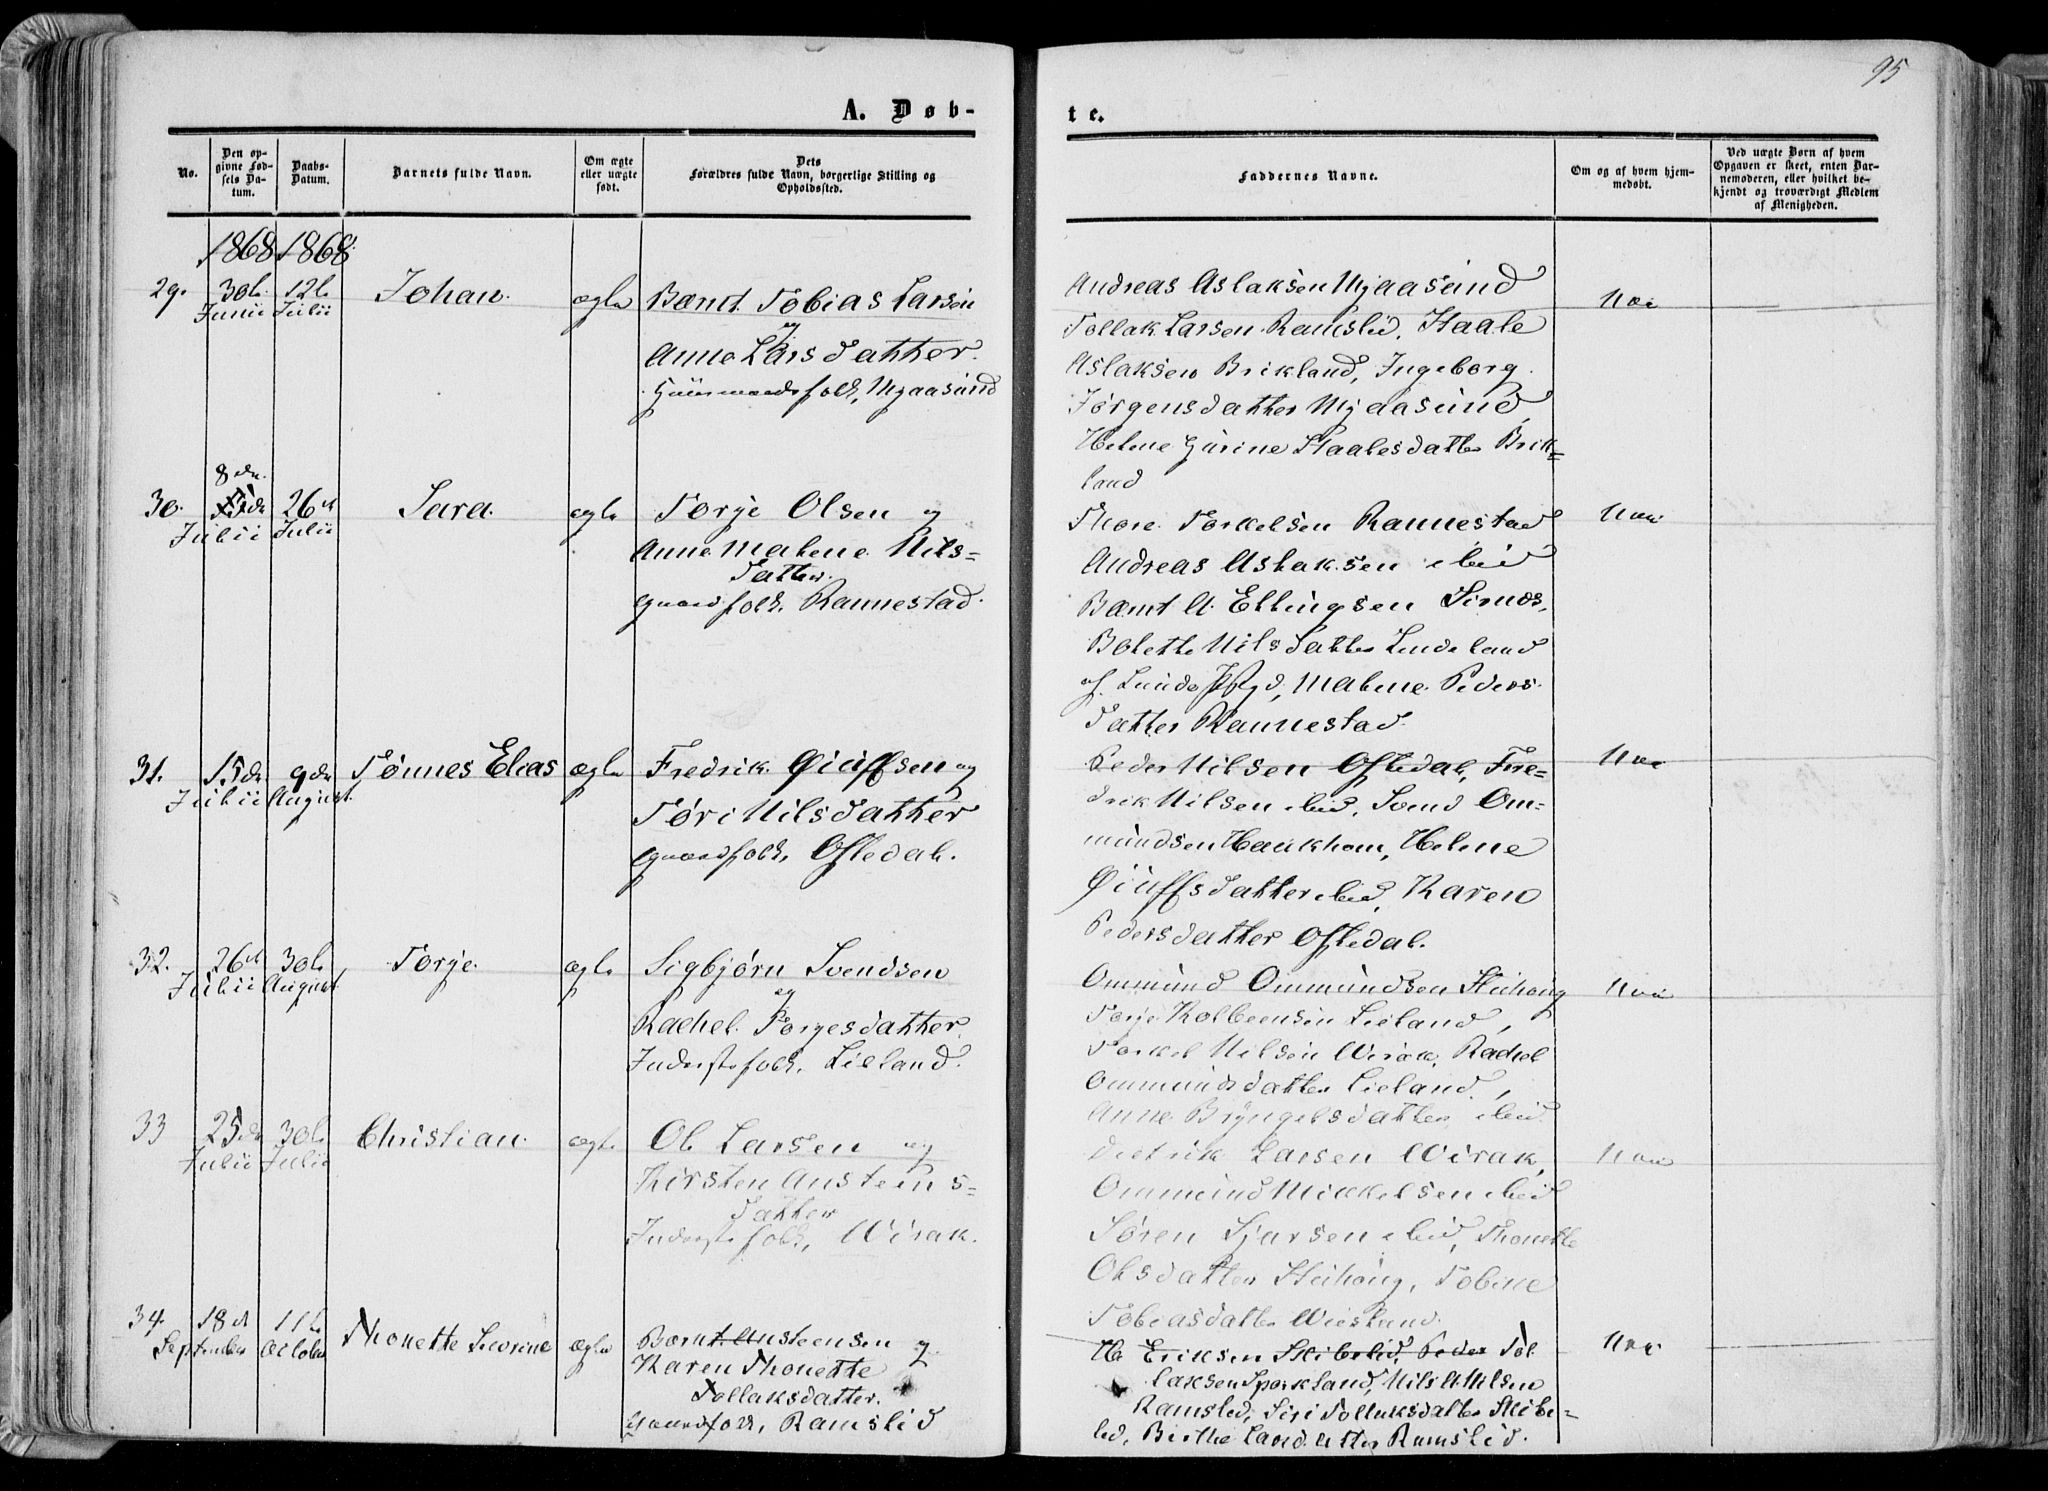 95
A. Døb-
te.
No.
Den opgivne Fødsels Datum.
Daabs-Datum.
Barnets fulde Navn.
Om ægte eller uægte født.
Dets Forældres fulde Navn, borgerlige Stilling og Opholdssted.
Faddernes Navne.
Om og af hvem hjemmedøbt.
Ved uægte Børn af hvem Opgaven er skeet, enten Barnemoderen, eller hvilket bekjendt og troværdigt Medlem af Menigheden.
1868 1868
29. 30te Junii 12te Julii Johan. ægte Bernt Tobias Larsen
og
Anne Larsdatter.
Huusmandsfolk, Mjaasund
Andreas Aslaksen Mjaasund
Tollak Larsen Ramslid, Staale
Aslaksen Brikland, Ingeborg
Jørgensdatter Mjaasund
Helene Gurine Staalesdatter Brik=
land
Nei
30. 8de Julii 26de Julii Sara. ægte Torje Olsen og
Anne Malene Nils=
datter.
Gaardfolk, Rannestad.
Thore Torkelsen Rannestad
Andreas Aslaksen ibid
Bernt A. Ellingsen Sirnes,
Bolette Nilsdatter Lindeland
af Lunde, Malene Peders
datter Rannestad.
Nei
31. 15de Julii 9de August. Tønnes Elias ægte Fredrik Øiuffsen og
Tøri Nilsdatter
Gaardfolk, Oftedal.
Peder Nilsen Oftedal, Fre=
drik Nilsen ibid, Svend Om=
mundsen Haukhom, Helene
Øiuffsdatter ibid, Karen
Pedersdatter Oftedal.
Nei
32. 26de Julii 30te August Torje. ægte Sigbjørn Svendsen
og
Rachel Torjesdatter.
Inderstefolk, Lieland.
Ommund Ommundsen
Torje Kolbeensen Lieland,
Torkel Nilsen Wirak, Rachel
Ommundsdatter Lieland,
Anne Bryngelsdatter ibid.
Nei
33 25de Julii 30te Julii Christian. ægte Ole Larsen og
Kirsten Austeens=
datter
Inderstefolk, Wirak.
Dietrik Larsen Wirak,
Ommund Mikkelsen ibid
Søren Sjursen ibid, Thonette
Olsdatter, Tobine
Tobiasdatter
Nei
34. 18de September 11te October Thonette Severine ægte Bernt Austeensen og
Karen Thonette
Tollaksdatter.
Gaardfolk, Ramslid
Ole Eriksen Skibelid, Peder Tol
laksen, Nils A. Nilsen
Ramslid, Siri Tollaksdatter Skibe=
lid, Birthe Larsdatter Ramslid.
Nei